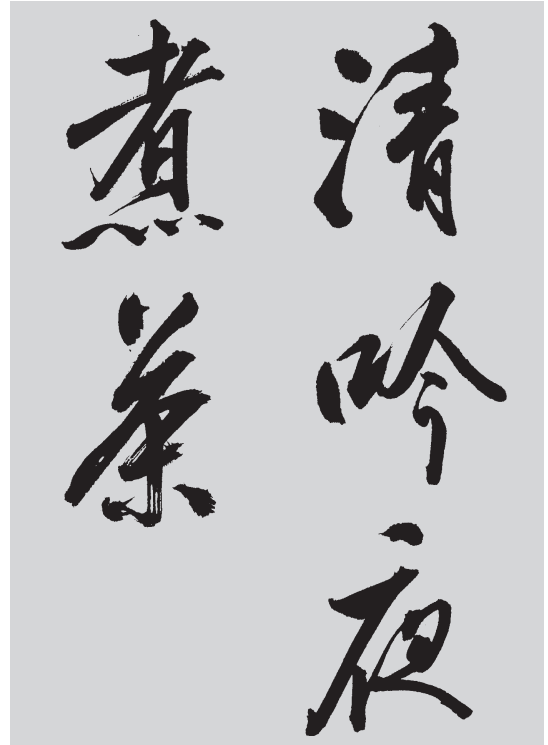 清吟夜
煮茶